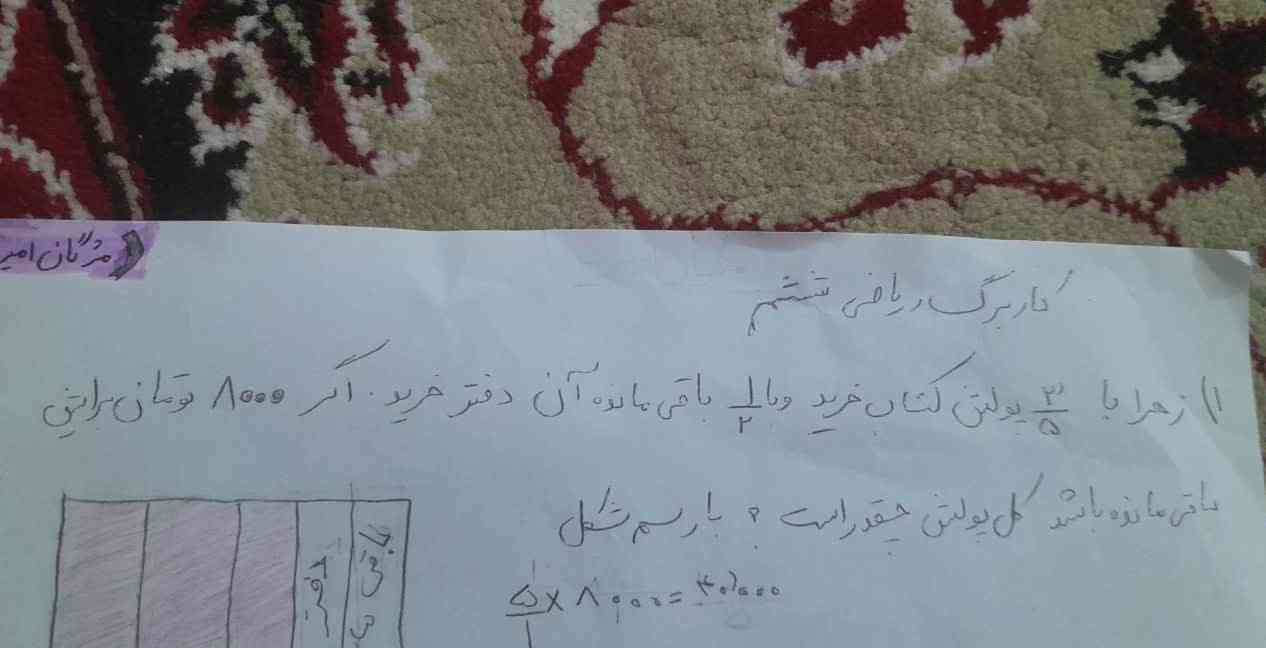 مژگان امیر
کاربرگ ریاضی ششم
۱) زهرا با ۳/۵ پولش کتاب خرید و با ۱/۲ باقی مانده آن دفتر خرید. اگر ۸۰۰۰ تومان برایش
باقی مانده باشد کل پولش چقدر است؟ با رسم شکل
۵/۱ × ۸۰۰۰ = ۴۰/۰۰۰
دفتر
باقی